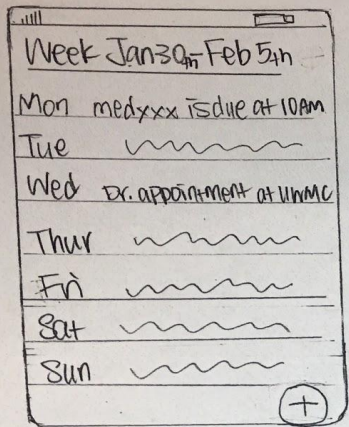 Week Jan30th-Feb 5th
Mon medyxx is due at 10AM
Tue
Wed Dr. appointment at UWMC
Thur
Fri
Sat
Sun
+